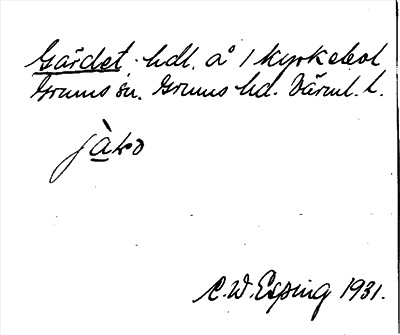 Gärdet, hdl. å 1 Kyrkebol
Grums sn. Grums hd. Värml. l.
C.W. Esping 1931.